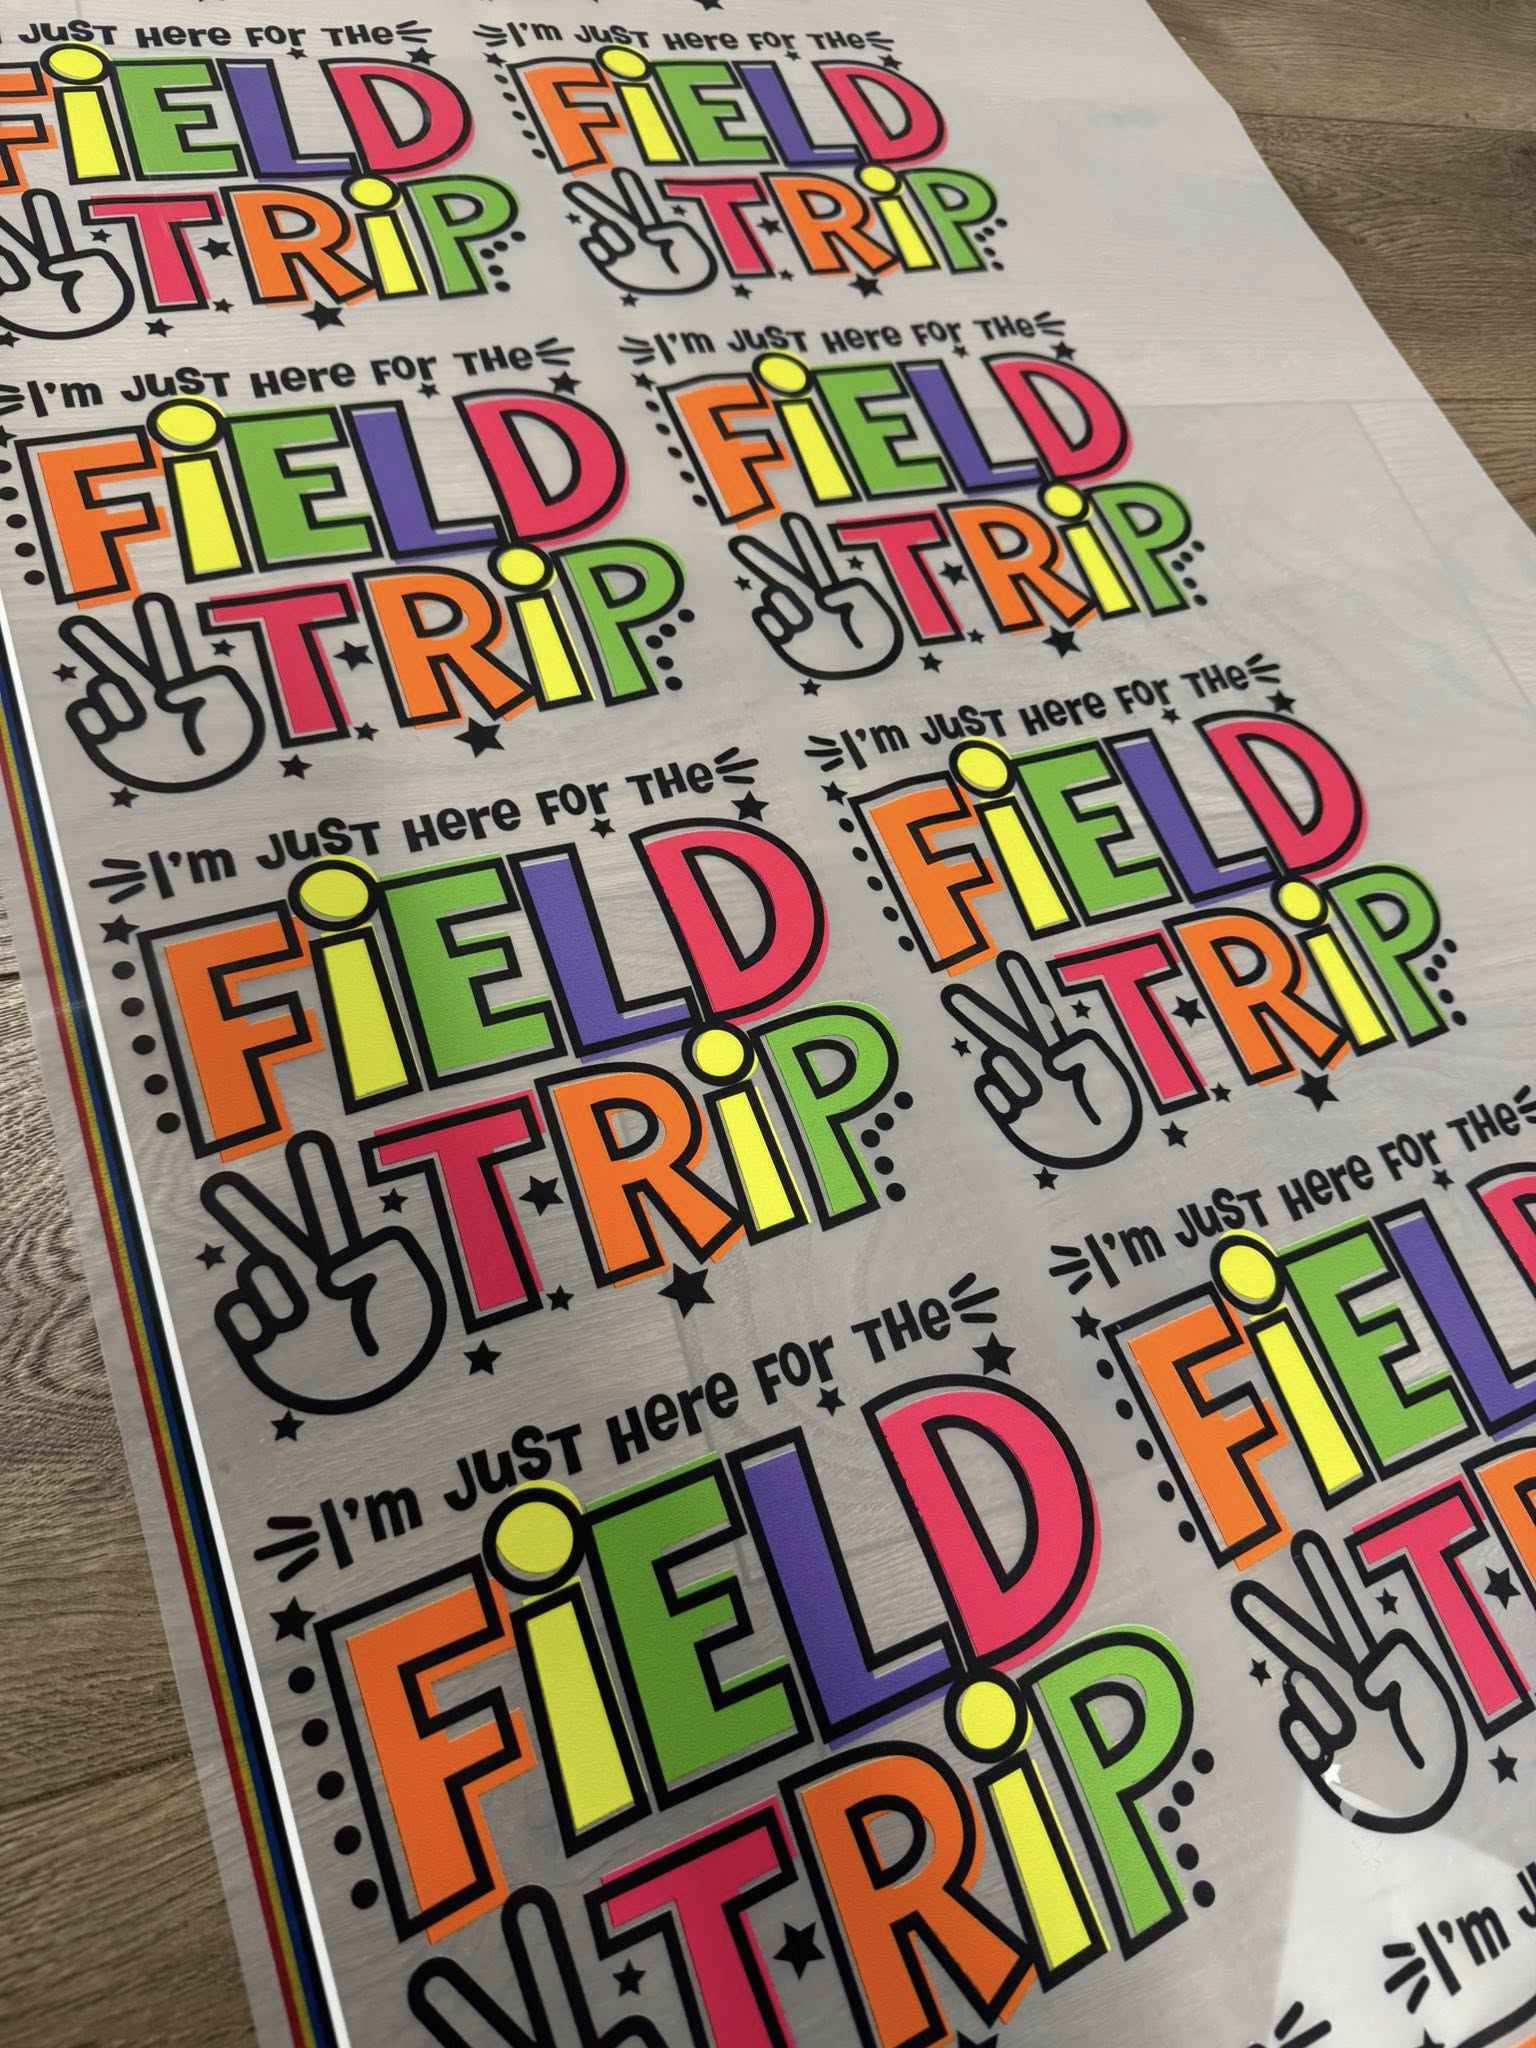 JuST Here FOr THe
FiELD
TRiP
I'm JuST Here FOr THe
FiELD
TRiP
I'm JuST Here FOr THe
FiELD
TRiP
I'm JuST Here FOr THe
FiELD
TRiP
I'm JuST Here FOr THe
FiELD
TRiP
I'm JuST Here FOr THe
FiELD
TRiP
I'm JuST Here FOr THe
FiELD
TRiP
I'm JuST Here FOr THe
FiELD
I'm